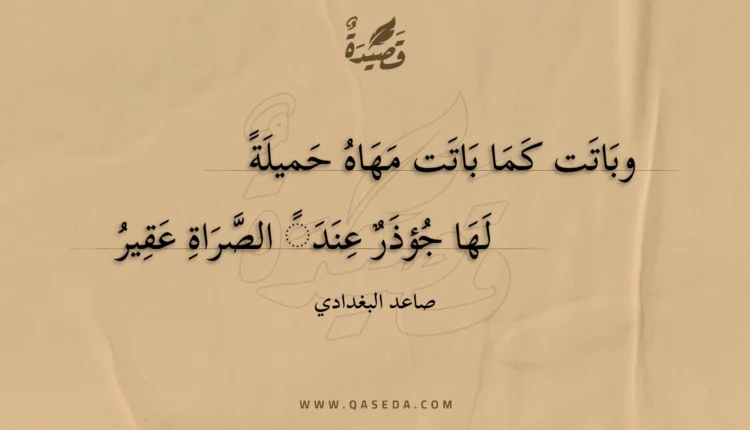 قَصِيْدَةٌ
وبَاتَت كَمَا بَاتَت مَهَاهُ حَميلَةً
لَهَا جُؤذَرٌ عِنَدَ ً الصَّرَاةِ عَقِيرُ
صاعد البغدادي
WWW.QASEDA.COM